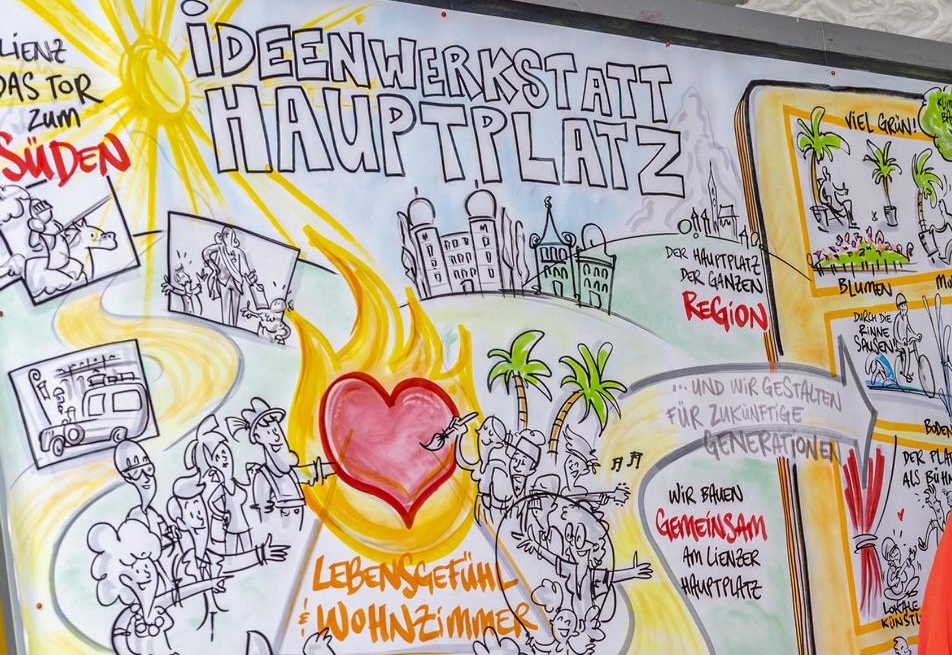 LIENZ
DAS TOR
ZUM
SÜDEN
iDEENWERKSTATT
HAUPTPLATZ
DER HAUPTPLATZ
DER GANZEN
REGION
LEBENSGEFÜHL
& WOHNZimmER
... UND WiR GESTALTEN
FÜR ZUKÜNFTIGE
GENERATIONEN
WiR BAUEN
GEMEiNSAM
AM LiENZER
HAUPTPLATZ
ViEL GRÜN!
BLUMEN
DURCH DiE
RiNNE
SAUSEN!
BODEN
DER PLA
ALS BÜH
LOKALE
KÜNSTL